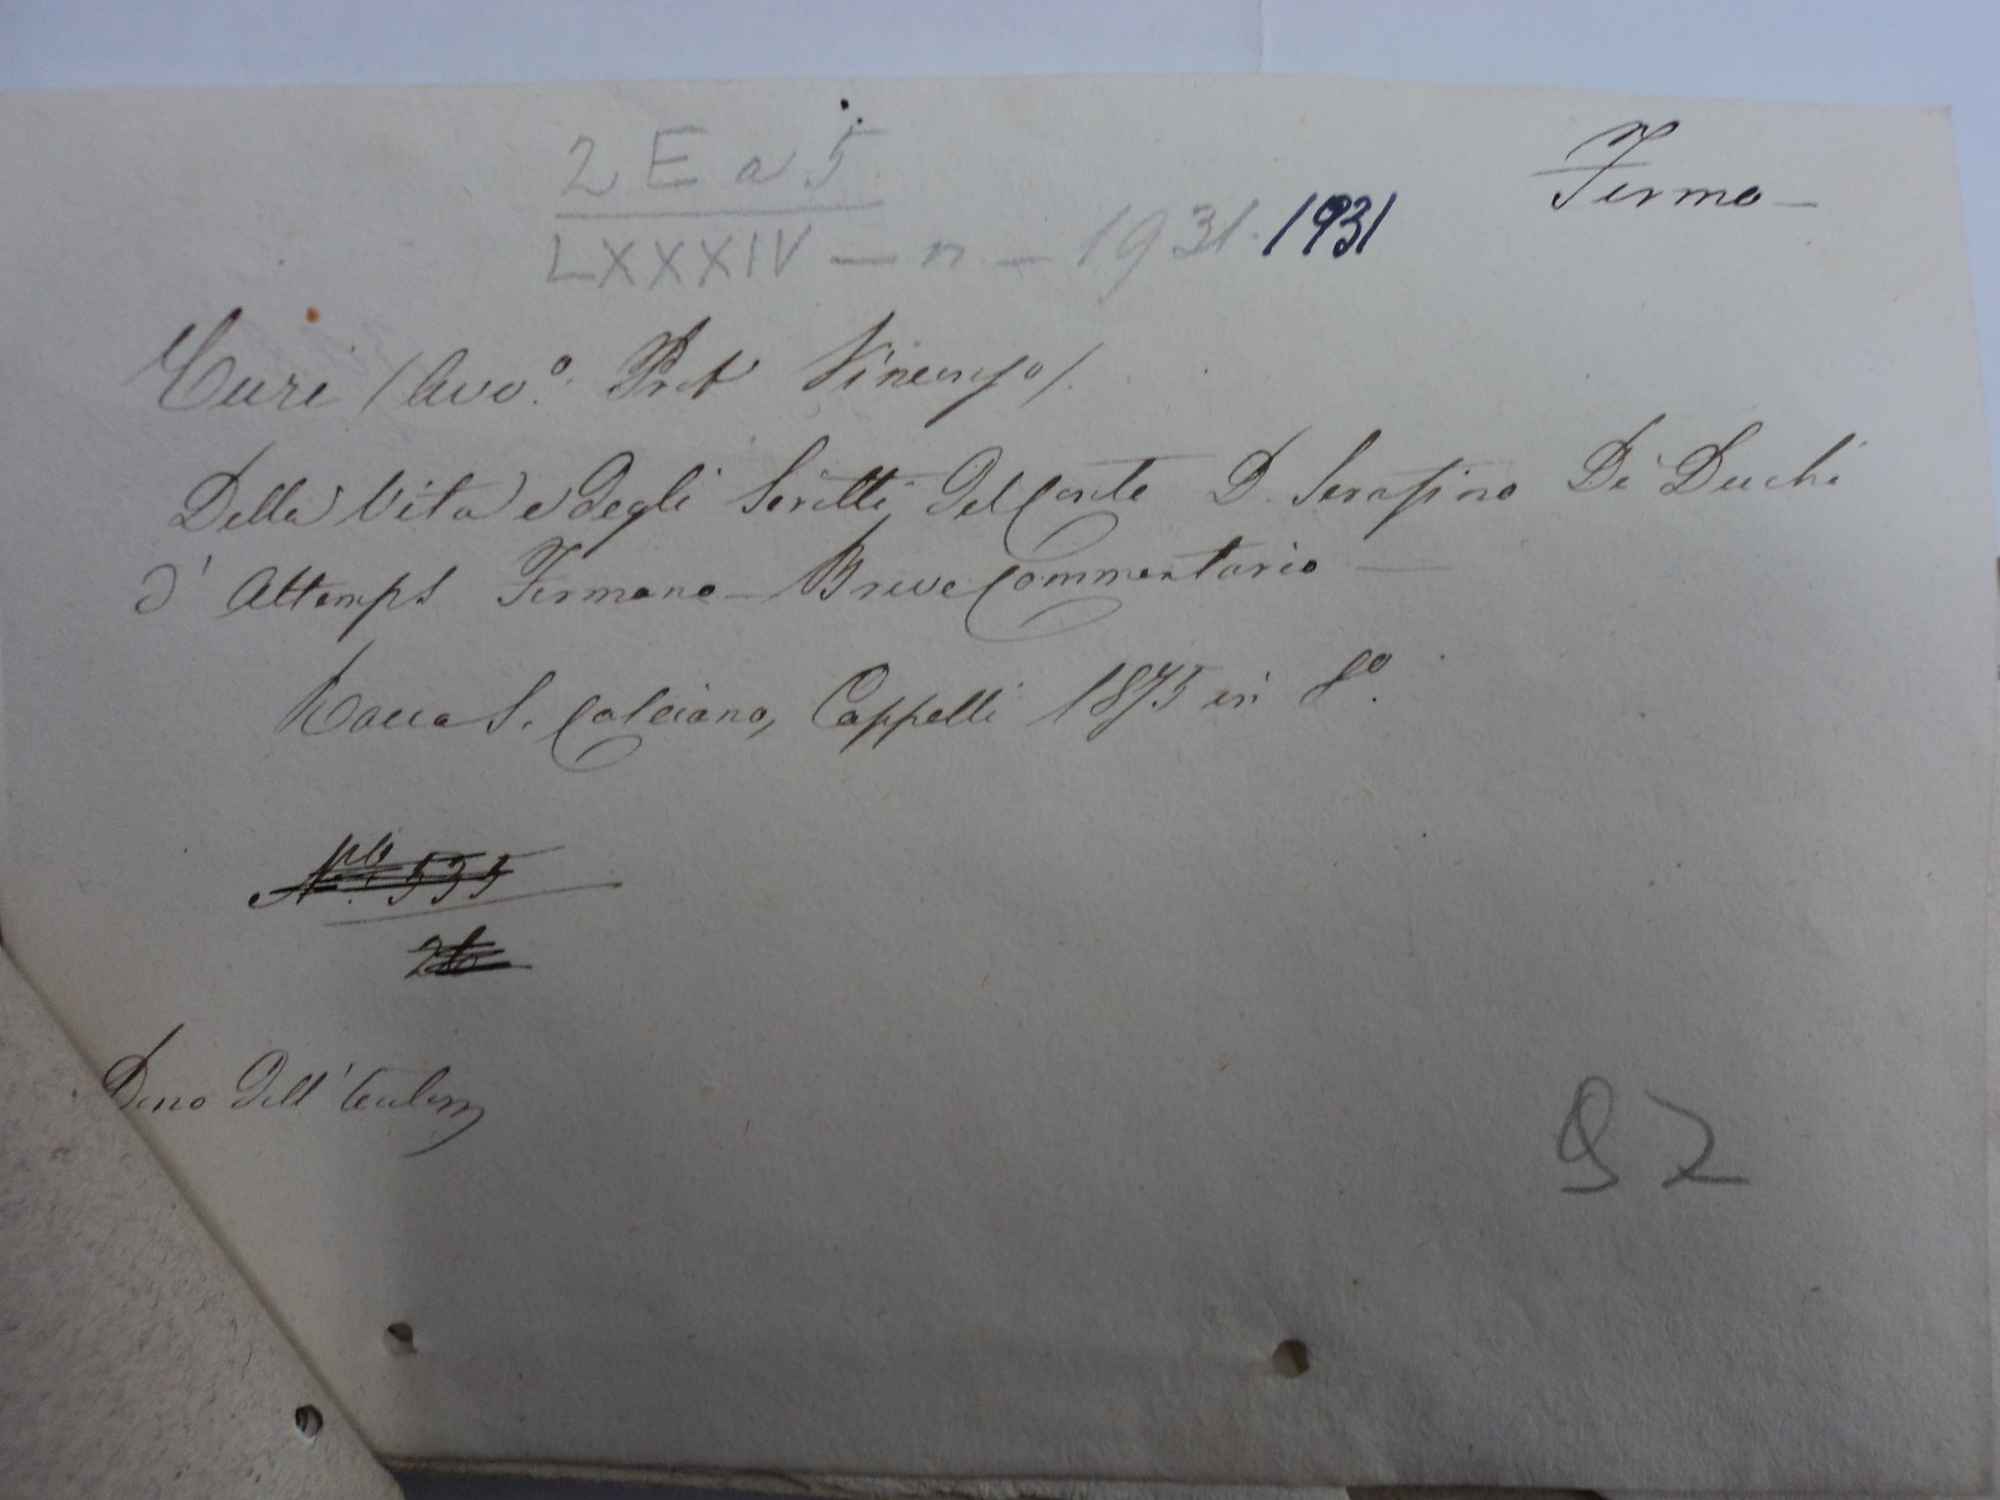 Fermo —
2 E a 5
LXXXIV — n — 1931. 1931
Curi /Avv.º Prof Vincenzo/.
Della Vita e degli Scritti del Conte D. Serafino De' Duchi
d' Altemps Fermano — Breve Commentario —
Rocca S. Casciano, Cappelli 1875 in 8º.
535
Dono dell'
92